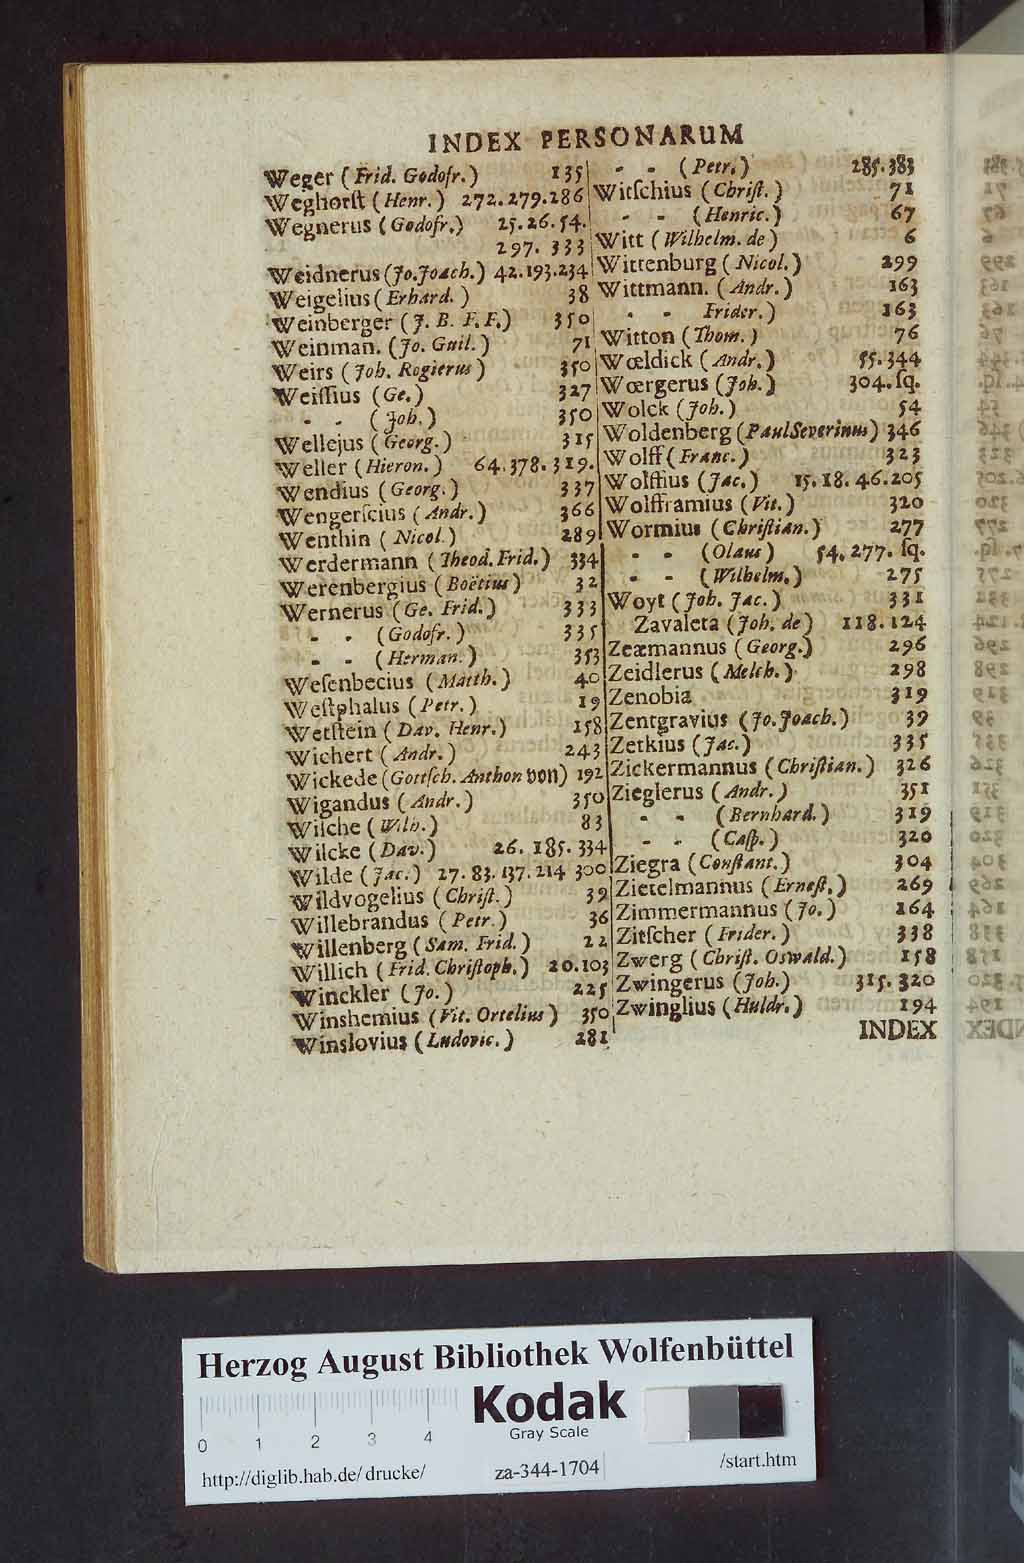 INDEX PERSONARUM
Weger (Frid. Godofr.) 135
Weghorſt (Henr.) 272. 279. 286
Wegnerus (Godofr.) 25. 26. 54.
297. 333
Weidnerus (Jo. Joach.) 42. 193. 234
Weigelius (Erhard.) 38
Weinberger (J. B. F. F.) 350
Weinman. (Jo. Guil.) 71
Weirs (Joh. Rogierus) 350
Weiſſius (Ge.) 327
- - (Joh.) 350
Wellejus (Georg.) 315
Weller (Hieron.) 64. 378. 319.
Wendius (Georg.) 337
Wengerſcius (Andr.) 366
Wenthin (Nicol.) 289
Werdermann (Theod. Frid.) 334
Werenbergius (Boëtius) 32
Wernerus (Ge. Frid.) 333
- - (Godofr.) 335
- - (Herman.) 353
Weſenbecius (Matth.) 40
Weſtphalus (Petr.) 19
Wetſtein (Dav. Henr.) 158
Wichert (Andr.) 243
Wickede (Gottſch. Anthon von) 192
Wigandus (Andr.) 350
Wilche (Wilh.) 83
Wilcke (Dav.) 26. 185. 334
Wilde (Jac.) 27. 83. 137. 214 300
Wildvogelius (Chriſt.) 39
Willebrandus (Petr.) 36
Willenberg (Sam. Frid.) 22
Willich (Frid. Chriſtoph.) 20. 103
Winckler (Jo.) 225
Winshemius (Vit. Ortelius) 350
Winslovius (Ludovic.) 281
- - (Petr.) 285. 383
Witſchius (Chriſt.) 71
- - (Henric.) 67
Witt (Wilhelm. de) 6
Wittenburg (Nicol.) 299
Wittmann. (Andr.) 163
- - Frider.) 163
Witton (Thom.) 76
Wœldick (Andr.) 55. 344
Wœrgerus (Joh.) 304. ſq.
Wolck (Joh.) 54
Woldenberg (Paul Severinus) 346
Wolff (Franc.) 323
Wolffius (Jac.) 15. 18. 46. 205
Wolfframius (Vit.) 320
Wormius (Chriſtian.) 277
- - (Olaus) 54. 277. ſq.
- - (Wilhelm.) 275
Woyt (Joh. Jac.) 331
Zavaleta (Joh. de) 118. 124
Zeæmannus (Georg.) 296
Zeidlerus (Melch.) 298
Zenobia 319
Zentgravius (Jo. Joach.) 39
Zetkius (Jac.) 335
Zickermannus (Chriſtian.) 326
Zieglerus (Andr.) 351
- - (Bernhard.) 319
- - (Caſp.) 320
Ziegra (Conſtant.) 304
Zietelmannus (Erneſt.) 269
Zimmermannus (Jo.) 264
Zitſcher (Frider.) 338
Zwerg (Chriſt. Oswald.) 158
Zwingerus (Joh.) 315. 320
Zwinglius (Huldr.) 194
INDEX
Herzog August Bibliothek Wolfenbüttel
Kodak
Gray Scale
0 1 2 3 4
http://diglib.hab.de/drucke/ za-344-1704 /start.htm